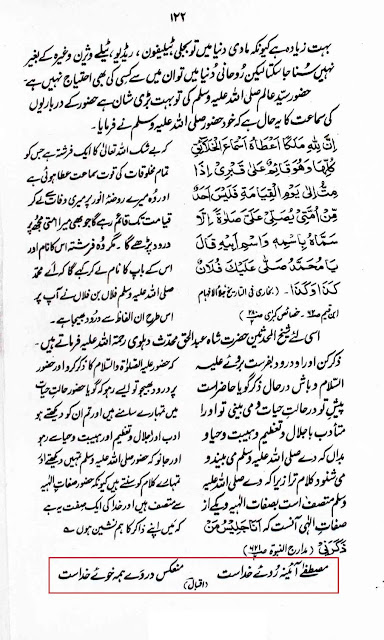 ۱۲۲
بہت زیادہ ہے کیونکہ مادی دنیا میں تو بجلی ٹیلیفون، ریڈیو، ٹیلے ویژن وغیرہ کے بغیر
نہیں سُنا جا سکتا لیکن رُوحانی دُنیا میں تو ان میں سے کسی کی بھی احتیاج نہیں ہے۔
حضور سیّدِ عالم صلی اللہ علیہ وسلم کی تو بہت بڑی شان ہے حضور کے درباریوں
کی سماعت کا یہ حال ہے کہ خود حضور صلی اللہ علیہ وسلم نے فرمایا۔
اِنَّ لِلّٰهِ مَلَكًا اَعْطَاهُ اَسْمَاعَ الْخَلَائِقِ
كُلِّهَا وَهُوَ قَائِمٌ عَلٰى قَبْرِىْ اِذَا
مِتُّ اِلٰى يَوْمِ الْقِيَامَةِ فَلَيْسَ اَحَدٌ
مِّنْ اُمَّتِىْ يُصَلِّىْ عَلَىَّ صَلٰوةً اِلَّا
سَمَّاهُ بِاسْمِهٖ وَاسْمِ اَبِيْهِ قَالَ
يَا مُحَمَّدُ صَلّٰى عَلَيْكَ فُلَانٌ
كَذَا وَكَذَا۔ (بخاری فی التاریخ جلاء الافہام
ابن قیم خصائص کبریٰ
کہ بے شک اللہ تعالیٰ کا ایک فرشتہ ہے جس کو
تمام مخلوقات کی قوت سماعت عطا ہوئی ہے
اور وُہ میرے روضۂ انور پر میری وفات سے لے کر
قیامت تک قائم رہے گا جو بھی میرا امتی مجھ پر
درود پڑھے گا۔ مگر وُہ فرشتہ اس کا نام اور
اس کے باپ کا نام لے کر کہے گا کہ اے محمّد
صلی اللہ علیہ وسلم فلاں بن فلاں نے آپ پر
اس طرح ان الفاظ سے درُود بھیجا ہے۔
اسی لئے شیخ المحدثین حضرت شاہ عبدالحق محدّث دہلوی رحمۃ اللہ علیہ فرماتے ہیں۔
ذکر کن اورا و درود بفرست بر وے علیہ
السلام و باش در حال ذکر گویا حاضر است
پیشِ تو در حالتِ حیات و می بینی تو اورا
متأدب با جلال و تعظیم و ہیبت و حیا و
بداں کہ دے صلی اللہ علیہ وسلم می بیند و
می شنود کلام ترا زیرا کہ وے صلی اللہ علیہ
وسلم متصف است بصفات الٰہیہ و یکے از
صفاتِ الٰہی آنست کہ اَنَا جَلِيْسُ مَنْ
ذَكَرَنِىْ (مدارج النبوۃ
کہ حضور علیہ الصّلوٰۃ والسّلام کا ذکر کرو اور حضور
پر درود بھیجو تو ایسے رہو کہ گویا حضور حالتِ حیات
میں تمہارے سامنے ہیں اور تم ان کو دیکھتے ہو
ادب اور اجلال و تعظیم اور ہیبت و حیا سے رہو
اور جانو کہ حضور صلی اللہ علیہ وسلم تمہیں دیکھتے اور
تمہارے کلام کو سنتے ہیں کیونکہ حضور صفاتِ الٰہیہ
سے متصف ہیں اور خدا کی ایک صفت یہ ہے
کہ میں اپنے ذاکر کا ہم نشین ہوں
مصطفےٰ آئینہ رُوئے خداست منعکس در وے ہمہ خوئے خداست
(اقبال)